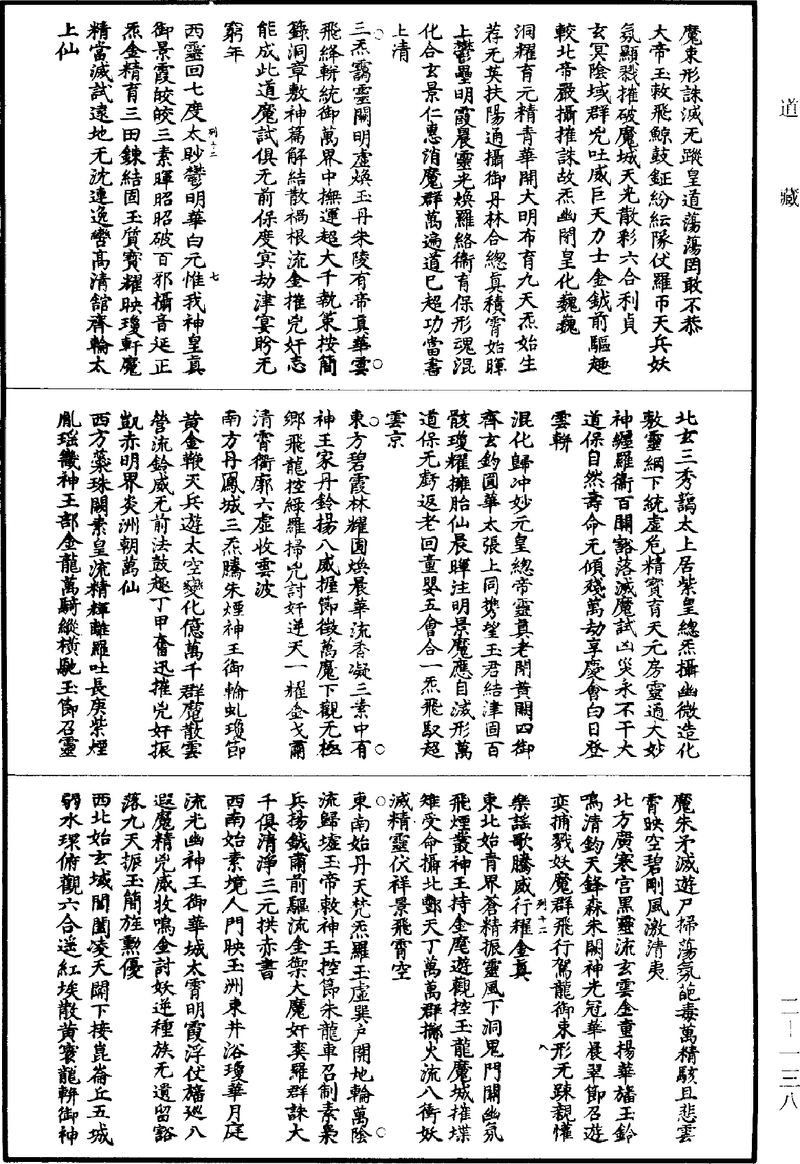 道藏
二—一三八
魔束形誅滅无蹤皇道蕩蕩罔敢不恭
大帝玉敕飛鯨鼓鉦紛紜隊伏羅帀天兵妖
氛顯戮摧破魔城天光散彩六合利貞
玄冥陰域群兇吐威巨天力士金鉞前驅趣
較北帝嚴攝摧誅故炁幽閉皇化巍巍
洞耀育元精青華開大明布育九天炁始生
荐无英扶陽通攝御丹林合總真積霄始暉
上鬱壘明霞晨靈光煥羅絡衛育保形魂混
化合玄景仁惠消魔群萬遍道巳超功當書
上清
三炁靄靈闕明虛煥玉丹朱陵有帝真華雲
飛絳軿統御萬界中撫運超大千執策按簡
籙洞章敷神篇解結散禍根流金摧兇奸志
能成此道魔試俱无前保度㝠劫津宴眄无
窮年
西靈回七度太眇鬱明華白元惟我神皇真
御景霞皎皎三素暉昭昭破百邪攝音延正
炁金精育三田鍊結固玉質寶耀映瓊軒魔
精當滅試遠地无沈連逸轡髙清館齊輪太
上仙
列十二
七
北玄三秀謁太上居紫皇總炁攝幽微造化
敷靈綱下統虛危精寶育天元房靈通大妙
神纏羅衛百關豁落滅魔試凶災永不干大
道保自然壽命无傾殘萬劫享慶會白日登
雲軿
混化歸沖妙元皇總帝靈真老閉黄闕四御
齊玄鈞圓華太張上同携望玉君結津固百
骸瓊耀擁胎仙晨暉注明景魔應自滅形萬
道保无虧返老回童嬰五會合一炁飛馭超
雲京
東方碧霞林耀圓煥晨華流香凝三素中有
神王家丹鈴揚八威握節徵萬魔下觀无極
鄉飛龍控緑羅掃兇討奸逆天一耀金戈肅
清霄衢廓六虛收雲波
南方丹鳳城三炁騰朱煙神王御輪虬瓊節
黄金鞭天兵遊太空變化億萬千群魔散雲
營流鈴威无前法鼓趣丁甲奮迅摧兇奸振
凱赤明界炎洲朝萬仙
西方蘂珠闕素皇流精輝離羅吐長庚紫煙
胤瑶㡬神王部金龍萬騎縱横馳玉節召靈
魔朱矛滅遊尸掃蕩氛葩毒萬精駭且悲雲
霄映空碧剛風激清夷
北方廣寒宫黒靈流玄雲金童揚華旛玉鈴
鳴清鈞天鋒森朱闕神光冠華晨翠節召遊
奕捕戮妖魔群飛行駕龍御束形无踈親懽
樂謡歌騰威行耀金真
列十二
八
東北始青界蒼精振靈風下洞鬼門關幽氛
飛煙叢神王持金麾遊觀控玉龍魔城摧堞
雉受命攝北酆天丁萬萬群擲火流八衝妖
滅精靈伏祥景飛霄空
東南始丹天梵炁羅玉虛巽户開地輪萬陰
流歸墟玉帝敕神王控節朱龍車召制素梟
兵揚鉞肅前驅流金禦大魔奸奕羅群誅大
千俱清浄三元拱赤書
西南始素境人門映玉洲東井浴瓊華月庭
流光幽神王御華城太霄明霞浮伏旛巡八
遐魔精兇威收鳴金討妖逆種族无遺留豁
落九天振玉簡旌勲優
西北始玄域閶闔凌天關下接崑崙丘五城
弱水環俯觀六合遥紅埃散黄寰龍軿御神